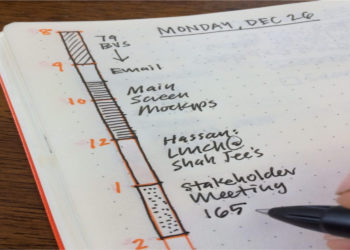 MONDAY, DEC 26
8
79
BVS
9
Email
10
Main
Screen
Mockups
12
Hassan:
Lunch@
Shah Jee's
1
Stakeholder
Meeting
165
2